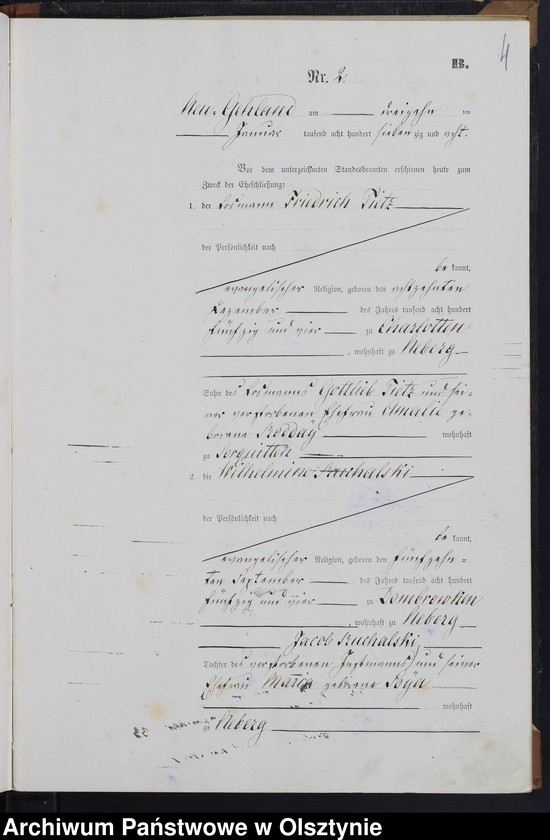 4
HB.
Nr. 2.
Neu-Gehland am dreizehn ten
Januar tausend acht hundert sieben zig und acht.
Vor dem unterzeichneten Standesbeamten erschienen heute zum
Zweck der Eheschließung:
1. der Losmann Friedrich Tietz
der Persönlichkeit nach
be kannt,
evangelischer Religion, geboren den achtzehnten
Dezember des Jahres tausend acht hundert
fünfzig und vier zu Charlotten
, wohnhaft zu Neberg
Sohn des Losmanns Gottlieb Tietz und sei-
ner verstorbenen Ehefrau Amalie ge-
borene wohnhaft
zu Sorquitten
2. die Wilhelmine Kuchalski
der Persönlichkeit nach
be kannt,
evangelischer Religion, geboren den fünfzehn-
ten September des Jahres tausend acht hundert
fünfzig und vier zu Dombrowken
, wohnhaft zu Neberg
Jacob Kuchalski
Tochter des verstorbenen und seiner
Ehefrau Marie geborene Soya
wohnhaft
zu Neberg
Archiwum Państwowe w Olsztynie